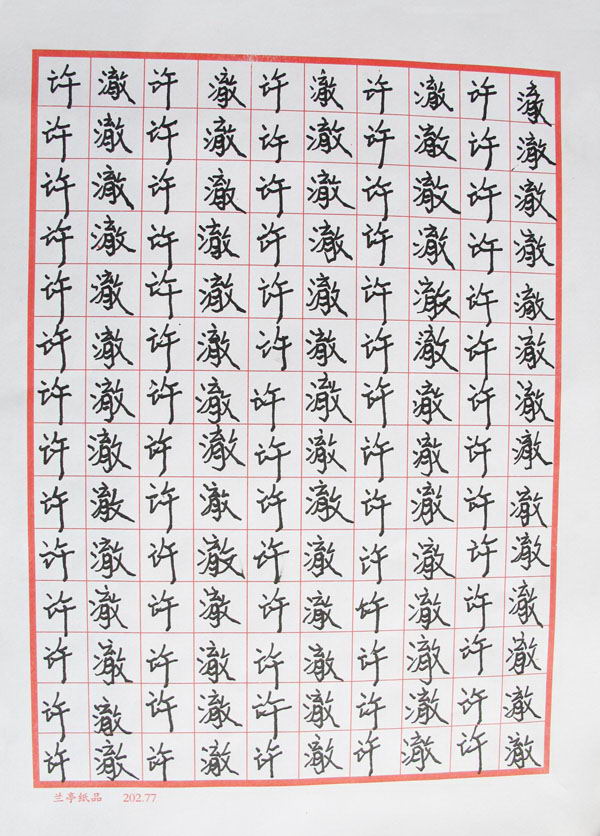 许澈许澈许澈许澈许澈
许澈许澈许澈许澈许澈
许澈许澈许澈许澈许澈
许澈许澈许澈许澈许澈
许澈许澈许澈许澈许澈
许澈许澈许澈许澈许澈
许澈许澈许澈许澈许澈
许澈许澈许澈许澈许澈
许澈许澈许澈许澈许澈
许澈许澈许澈许澈许澈
许澈许澈许澈许澈许澈
许澈许澈许澈许澈许澈
许澈许澈许澈许澈许澈
许澈许澈许澈许澈许澈
兰亭纸品 202.77